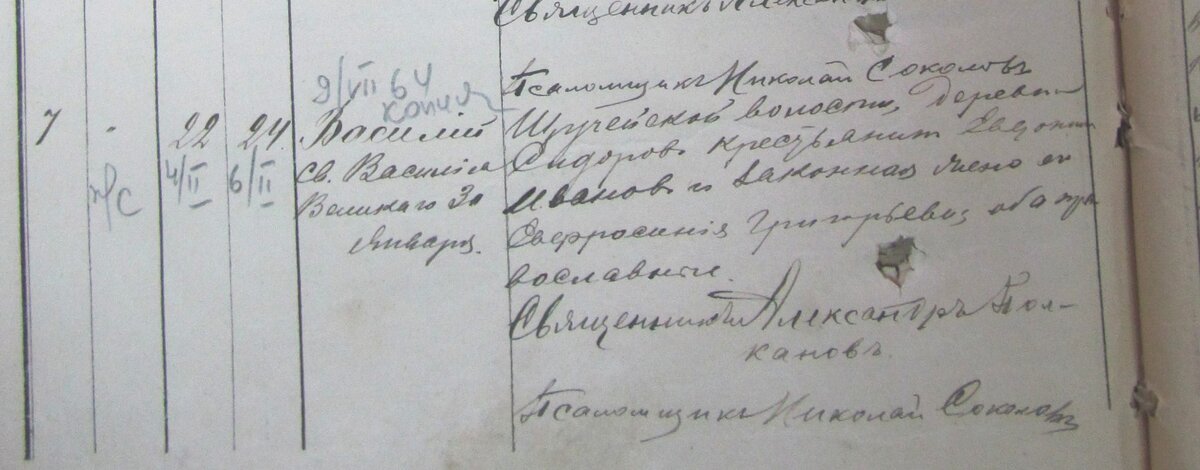 Священникъ Алексан
Псаломщикъ Николай Соколовъ
9/VII 64
копия
7 " 22 24. Василій
н/с 4/II 6/II
св. Василія
Великаго 30
Января.
Щучейской волости, деревни
Сидорово крестьянин Евдоким
Иванов и законная жена его
Евфросинія Григорьева, оба пра
вославные.
Священникъ Александръ Пол-
кановъ.
Псаломщикъ Николай Соколовъ